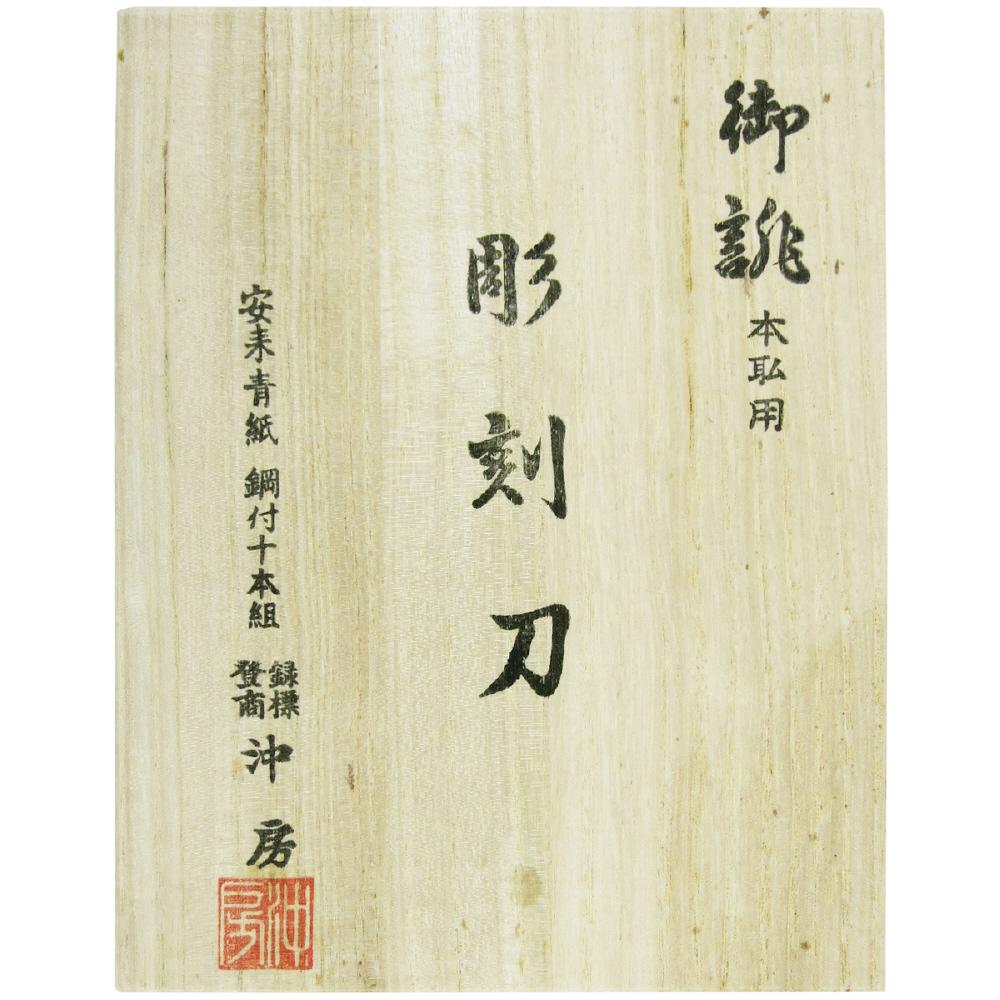 御誂 本耺用
彫刻刀
安来青紙 鋼付十本組 登録商標 沖房
沖房